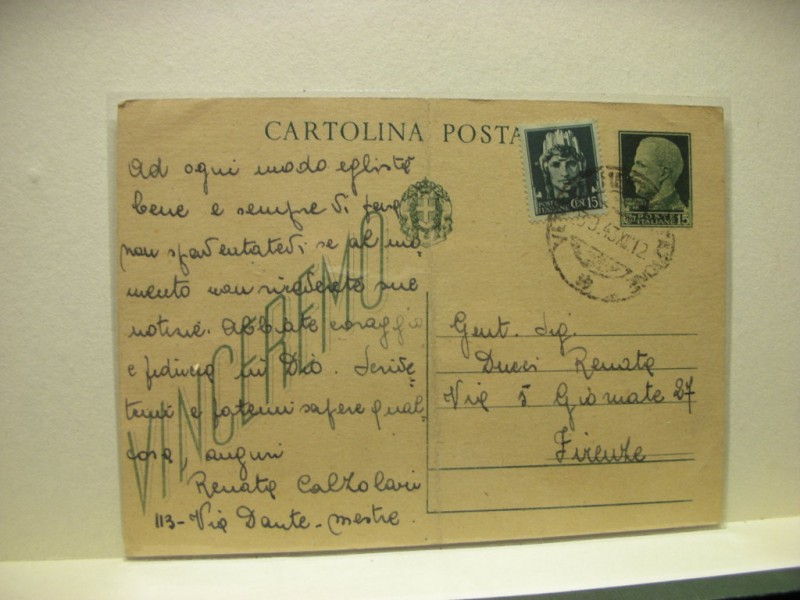 CARTOLINA POSTA
POSTE ITALIANE CENT 15
15
Ad ogni modo egli stà
bene e sempre vi pensa
non spaventatevi se al mo-
mento non riceverete sue
notizie. Abbiate coraggio
e fiducia in Dio. Scrive-
temi e fatemi sapere qual-
cosa, auguri
Renata Calzolari
113 - Via Dante - Mestre.
VINCEREMO
Gent. Sig.
Ducci Renata
Via 5 Giornate 27
Firenze